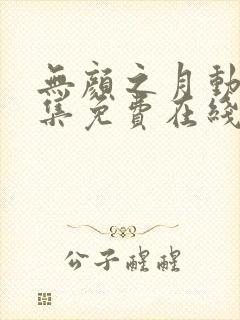 無顏之月動
集免費在綫
公子醒醒